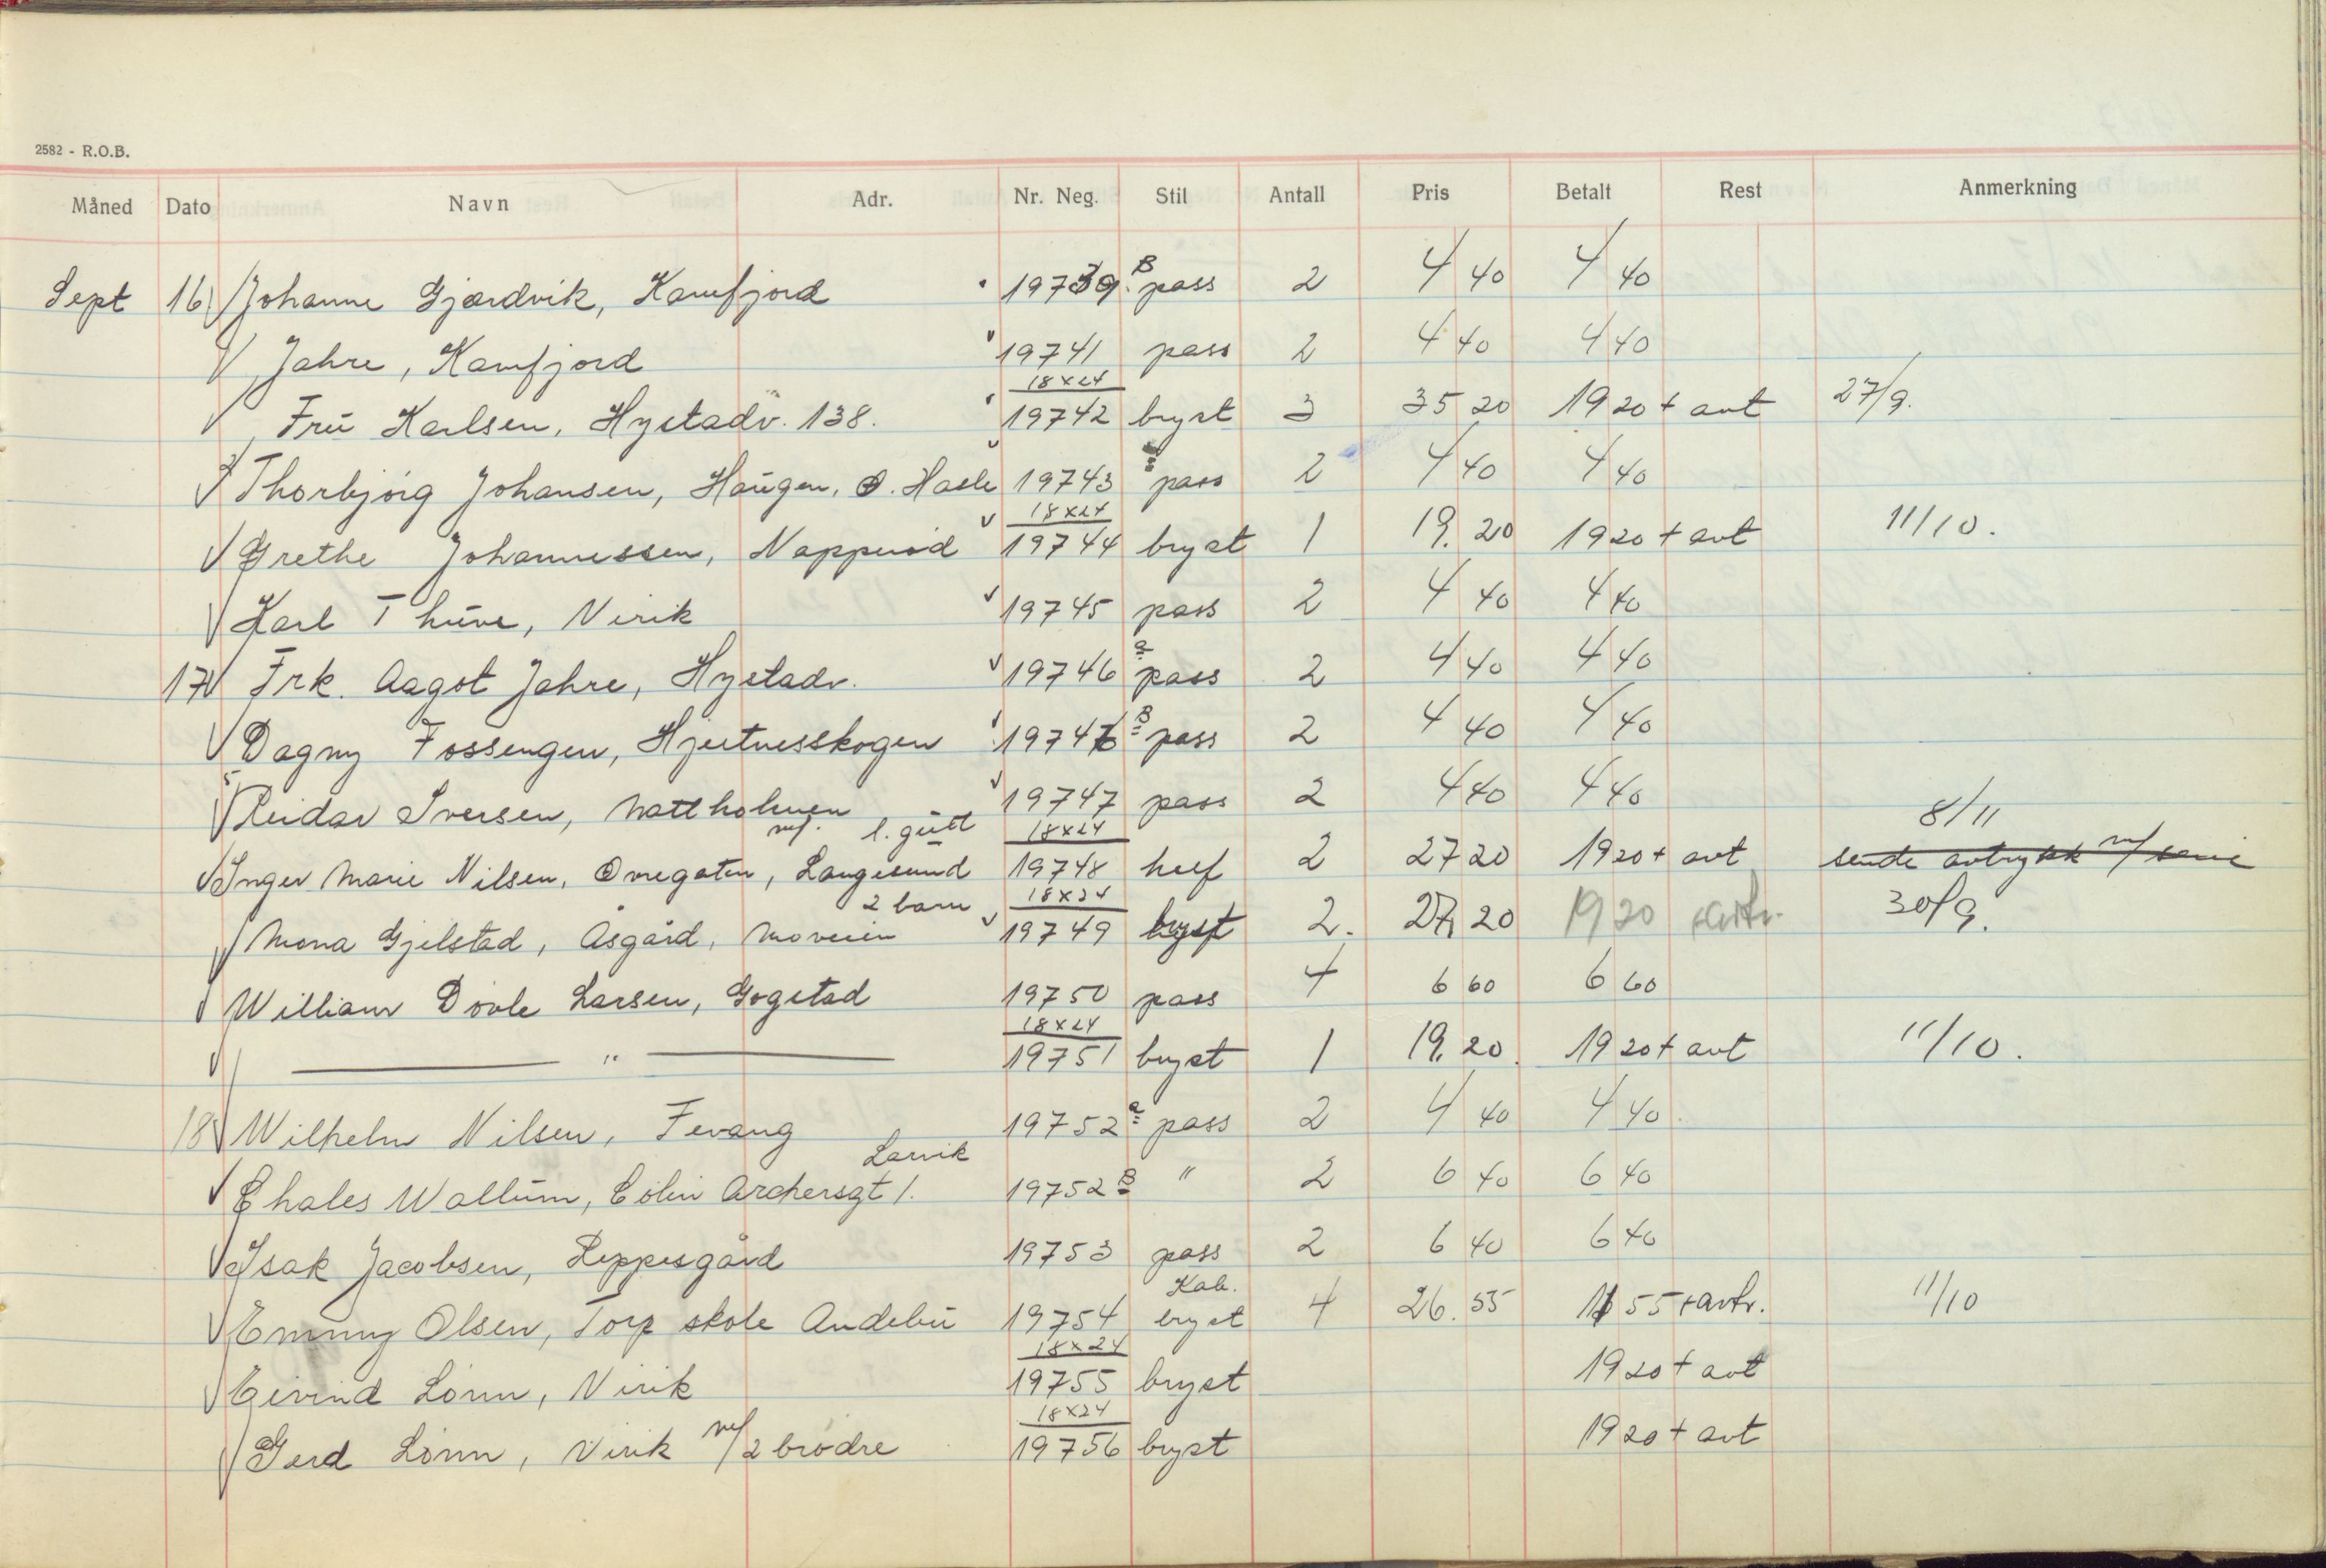 2582 - R.O.B.
Måned Dato Navn Adr. Nr. Neg. Stil Antall Pris Betalt Rest Anmerkning
Sept 16 Johanne Gjærdvik, Kamfjord 19739 B pass 2 4 40 4 40
Jahre, Kamfjord 19741 pass 2 4 40 4 40
18x24
Fru Karlsen, Hystadv. 138. 19742 bryst 3 35 20 19 20 + avt 27/9.
Thorbjörg Johansen, Haugen, Ø. Hasle 19743 pass 2 4 40 4 40
18x24
Grethe Johannessen, Napperød 19744 bryst 1 19. 20 19 20 + avt 11/10.
Karl Thune, Virik 19745 pass 2 4 40 4 40
17 Frk. Aagot Jahre, Hystadv. 19746 a pass 2 4 40 4 40
Dagny Fossengen, Hjertnesskogen 19746 B pass 2 4 40 4 40
Reidar Iversen, Natholmen 19747 pass 2 4 40 4 40
m/. l. gutt 18x24 8/11
Inger Marie Nilsen, Øvregaten, Langesund 19748 helf 2 27 20 19 20 + avt sende avtrykk m/
2 barn 18x24
Mona Gjelstad, Åsgård, Moveien 19749 bryst 2. 27, 20 19 20 + avtr. 30/9.
William Dovle Larsen, Gogstad 19750 pass 4 6 60 6 60
18x24
— " — 19751 bryst 1 19, 20. 19 20 + avt 11/10.
18 Wilhelm Nilsen, Fevang 19752 a pass 2 4 40 4 40.
Larvik
Chales Wallum, Colin Archersgt 1. 19752 B " 2 6 40 6 40
Isak Jacobsen, Leppesgård 19753 pass 2 6 40 6 40
Kab.
Emmy Olsen, Torp skole Andebu 19754 bryst 4 26. 55 16 55 + avtr. 11/10
18x24
Eivind Lönn, Virik 19755 bryst 19 20 + avt
18x24
Gerd Lönn, Virik m/2 brødre 19756 bryst 19 20 + avt